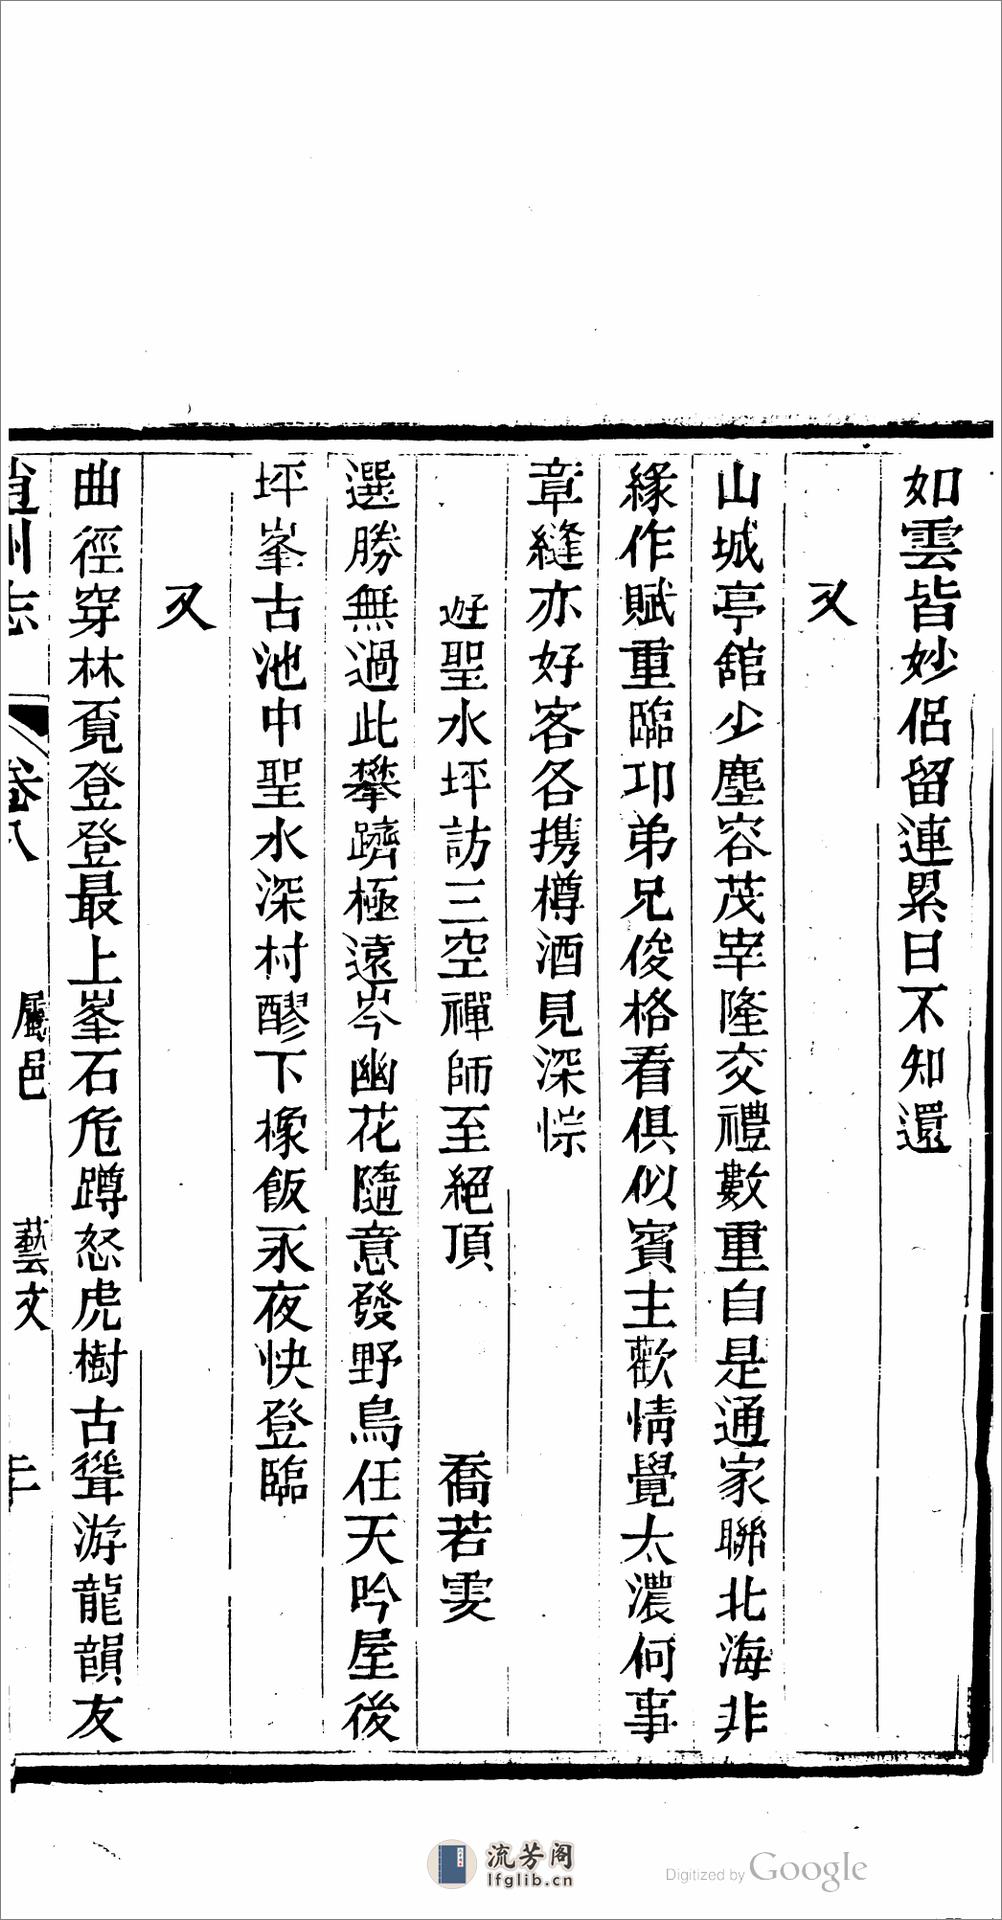 如雲皆妙侶留連累日不知還
又
山城亭舘少塵容茂宰隆交禮數重自是通家聯北海非
緣作賦重臨邛弟兄俊格看俱似賓主歡情覺太濃何事
章縫亦好客各携樽酒見深悰
遊聖水坪訪三空禪師至絕頂 喬若雯
選勝無過此攀躋極遠岑幽花隨意發野鳥任天吟屋後
坪峯古池中聖水深村醪下橡飯永夜快登臨
又
曲徑穿林覔登登最上峯石危蹲怒虎樹古聳游龍韻友
趙州志 卷八 屬邑 藝文
流芳阁
lfglib.cn
Digitized by Google